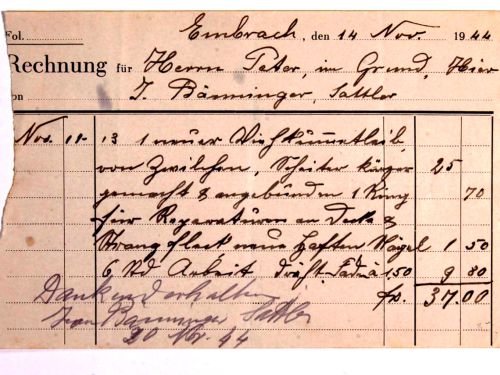 Fol.
Embrach, den 14 Nov. 1944
Rechnung für Herrn Peter, im Grund, Hier
von J. Bänninger, Sattler
Nov. 11-13 1 neuer Viehkummetleib
von Zwilchen, Scheiter kürzer 25
gemacht & angebunden 1 Ring 70
für Reparaturen an Decke &
Strangfleck neue Haften Nägel 1 50
6 Std Arbeit 1.50 9 80
fr. 37.00
Dankend erhalten
Bänninger Sattler
20 Nov. 44